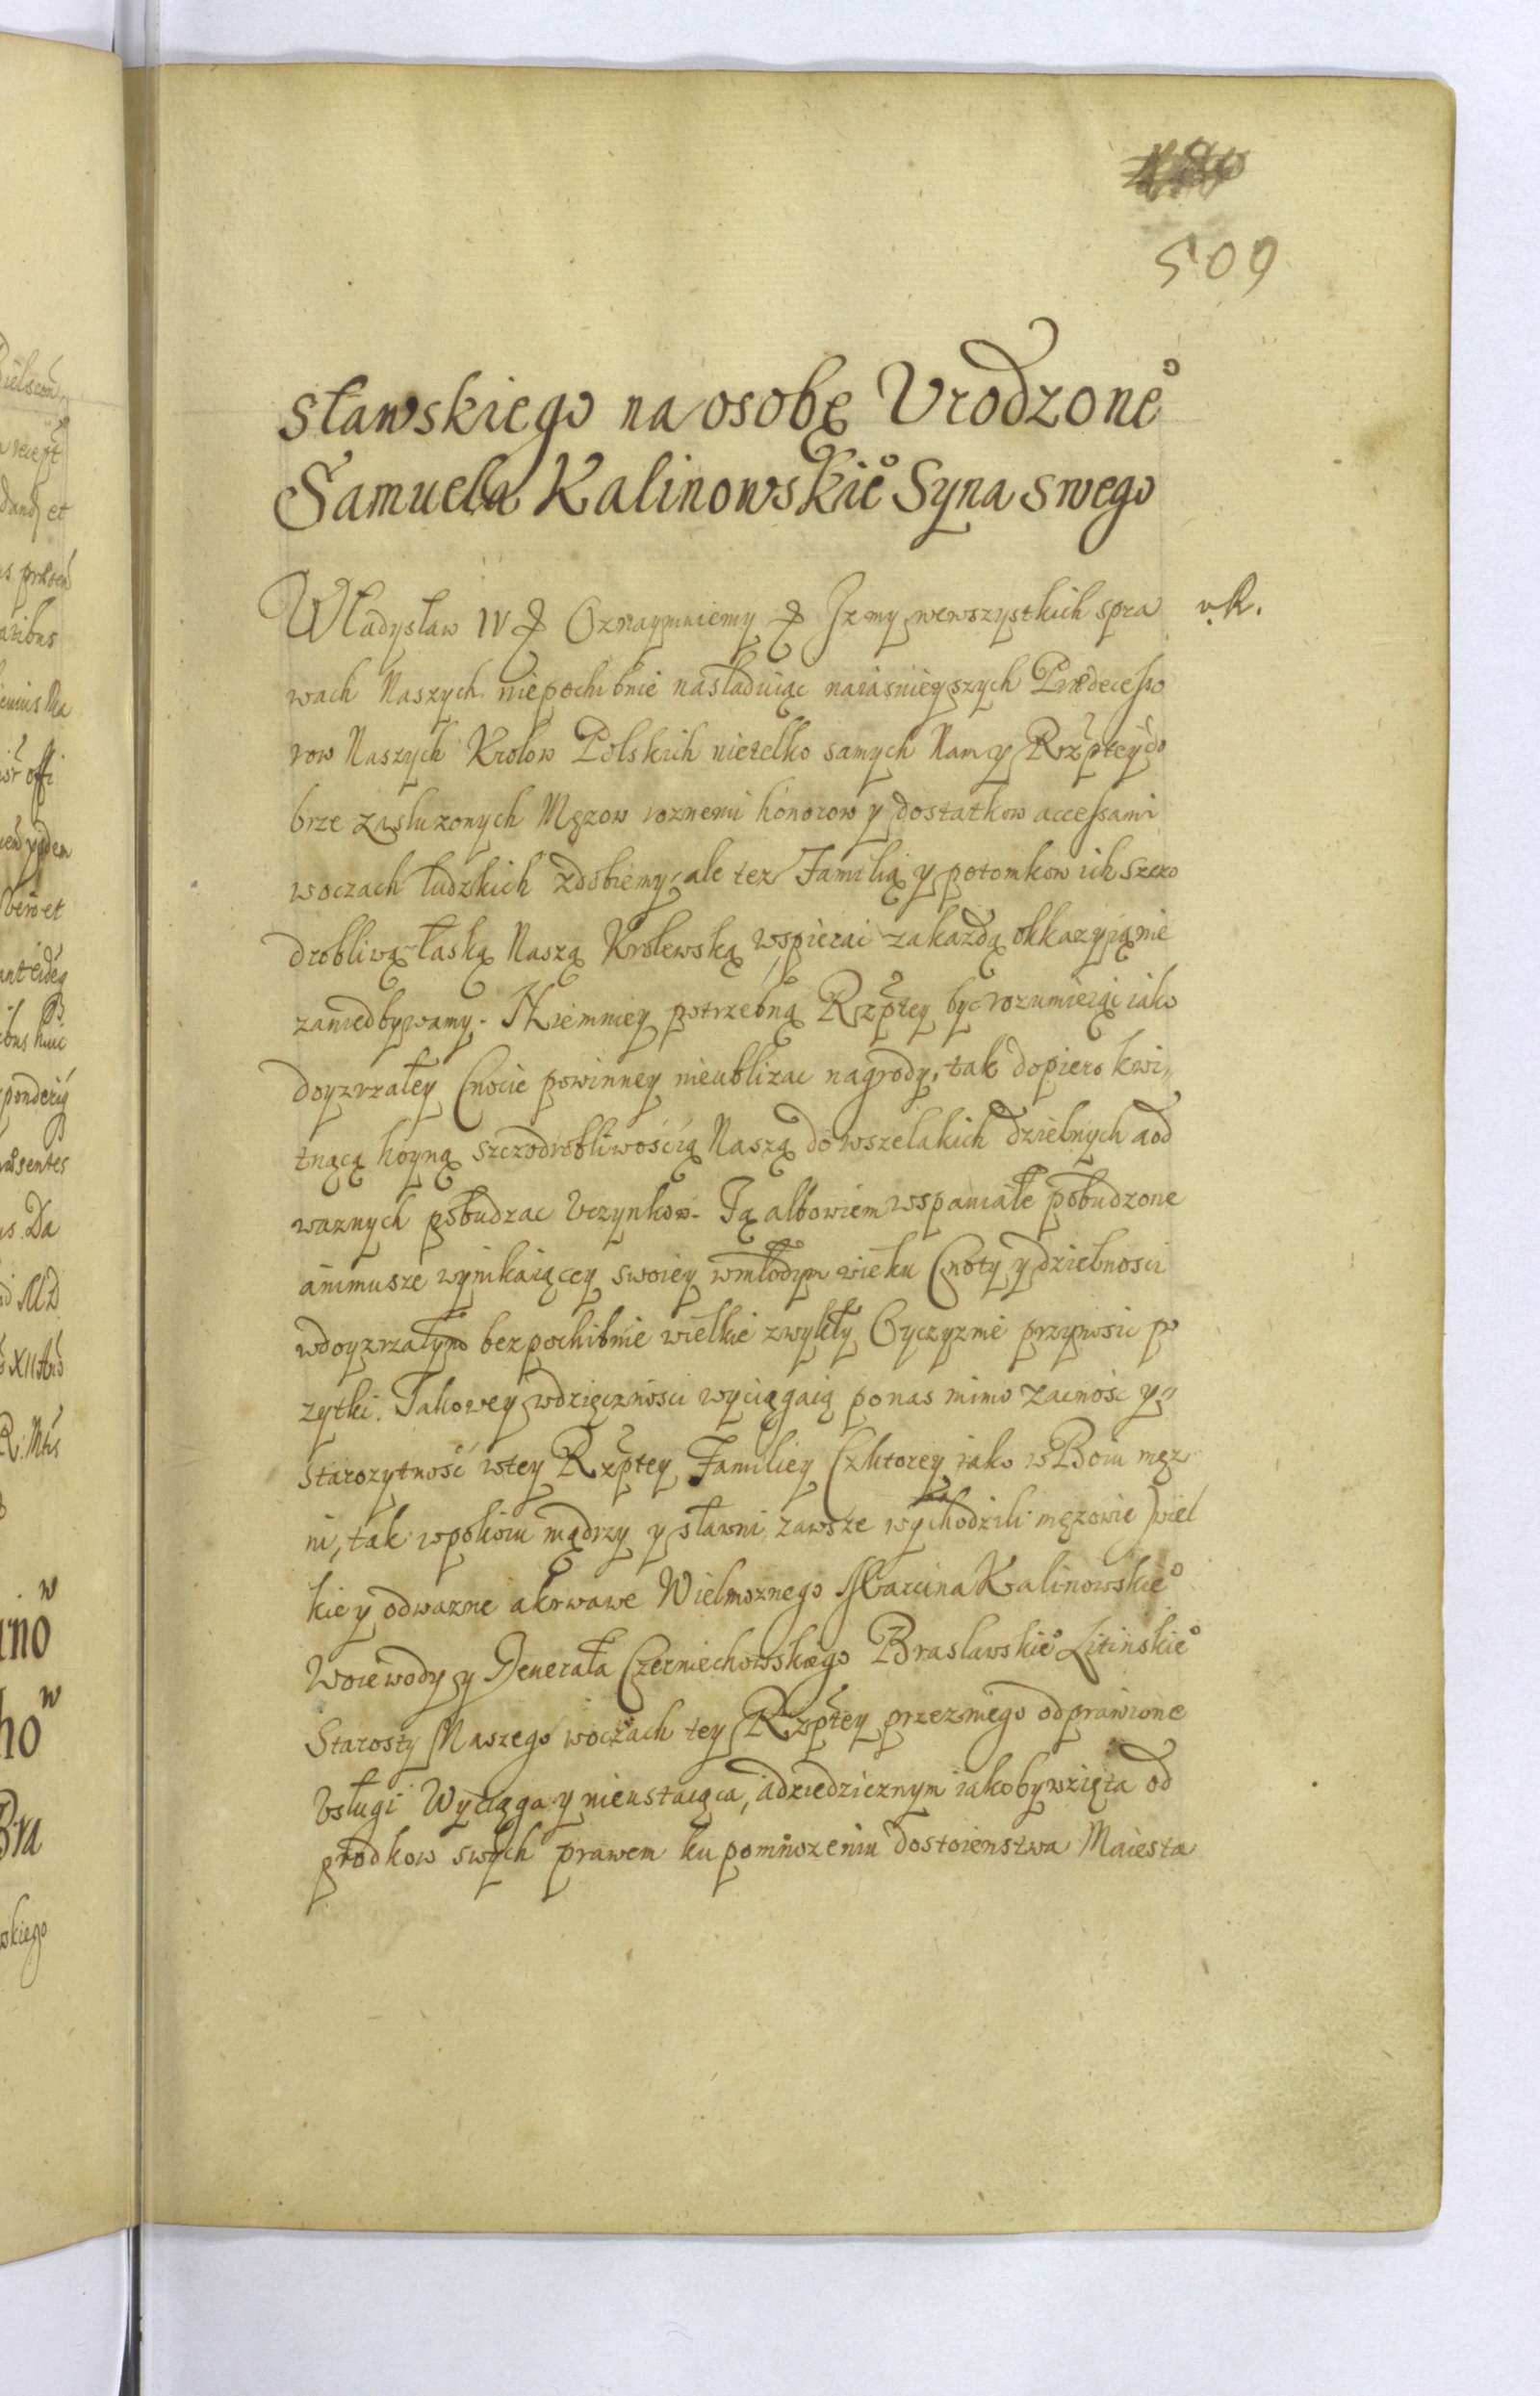 509
sławskiego na osobę Vrodzone°
Samuela Kalinowskie° Syna swego
Władysław IV & Oznaymuiemy & Iz my wewszystkich spra
v.R.
wach Naszych niepochibnie nasladuiąc naiasnieyszych Prædecesso
row Naszych Krolow Polskich nietelko samych Nam y Rzptey do
brze zasłuzonych Męzow roznemi honorow y dostatkow accessami
woczach ludzkich zdobiemy, ale tez Familią y potomkow ich szczo
drobliwą łaską Naszą Krolewską wspierai zakazdą okkazyią nie
zaniedbywamy. Niemniey potrzebną Rzptey byc rozumieiąc iako
doyzrzałey Cnocie powinney nieublizac nagrody, tak dopiero kwi,,
tnącą hoyną szczodrobliwością Naszą do wszelakich dzielnych a od
waznych pobudzac Vczynkow. Tą albowiem wspaniałe pobudzone
animusze wynikaiącey swoiey wmłodym wieku Cnoty y dzielnosci
wdoyzrzałym bezpochibnie wielkie zwykły Oyczyznie przynosic po
zytki. Takowey wdzięcznosci wyciągaią ponas mimo zacnosc y,,
starozytnosć wtey Rzptey Familiey (zktorey iako w Boiu męz
ni, tak wpokoiu mądrzy y sławni zawsze wychodzili męzowie) wiel
kie y odwazne akrwawe Wielmoznego Marcina Kalinowskie°
Woiewody y Generała Czerniechowskiego Brasławskie° Litinskie°
Starosty Naszego woczach tey Rzptey przezniego odprawione
Vsługi Wyciąga y nieustaiąca, a dziedzicznym iakoby wzięta od
przodkow swych prawem ku pomnozeniu dostoienstwa Maiesta